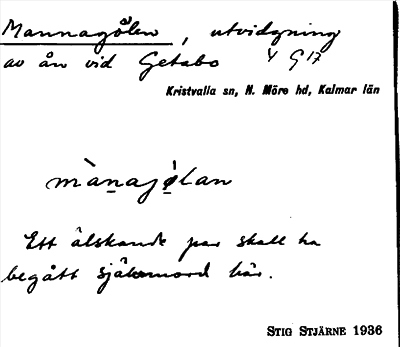 Mannagölen, utvidgning
av ån vid Getabo 4 G 17
Kristvalla sn, N. Möre hd, Kalmar län
mànagö̀lan
Ett älskande par skall ha
begått självmord här.
STIG STJÄRNE 1936